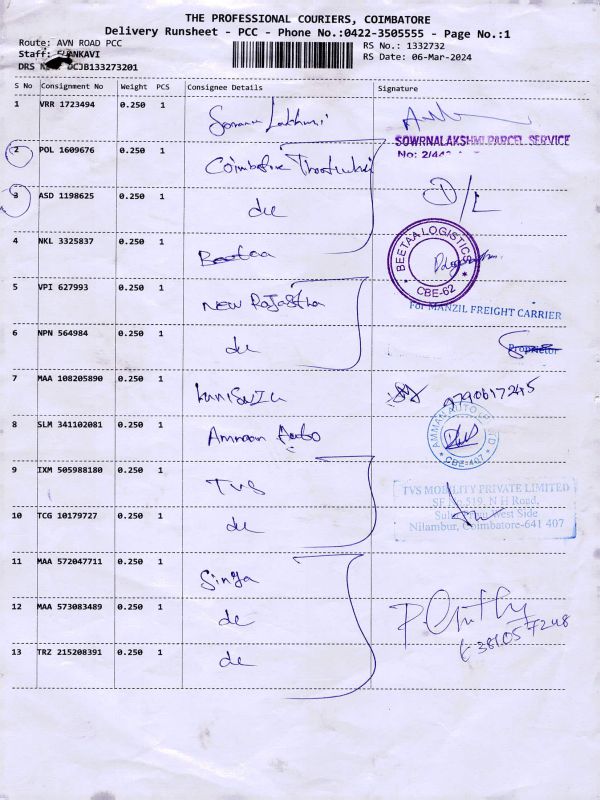 THE PROFESSIONAL COURIERS, COIMBATORE
Delivery Runsheet - PCC - Phone No.:0422-3505555 - Page No.:1
Route: AVN ROAD PCC
RS No.: 1332732
Staff:
RS Date: 06-Mar-2024
DRS
S No Consignment No Weight PCS Consignee Details Signature
1 VRR 1723494 0.250 1
SOWRNALAKSHMI PARCEL SERVICE
2 POL 1609676 0.250 1 Coimbatore
No: 2/44
3 ASD 1198625 0.250 1 do D/L
4 NKL 3325837 0.250 1 Beetaa
BEETAA LOGISTICS
CBE-62
5 VPI 627993 0.250 1 New Rajasthan
For MANZIL FREIGHT CARRIER
6 NPN 564984 0.250 1 do
Proprietor
7 MAA 108205890 0.250 1 9790617245
8 SLM 341102081 0.250 1 Ammaan Auto
AMMAN AUTO
CBE-407
9 IXM 505988180 0.250 1 TVS
TVS MOBILITY PRIVATE LIMITED
SF No 519, N H Road,
West Side
Nilambur, Coimbatore-641 407
10 TCG 10179727 0.250 1 do
11 MAA 572047711 0.250 1 Singa
12 MAA 573083489 0.250 1 de
13 TRZ 215208391 0.250 1 de